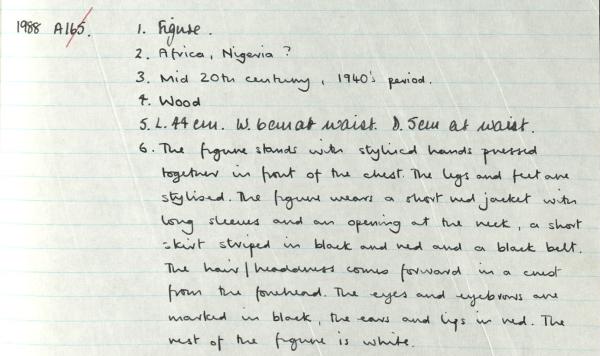 1988 A165. 1. Figure.
2. Africa, Nigeria ?
3. Mid 20th century, 1940's period.
4. Wood
5. L. 44 cm. W. 6cm at waist. D. 5cm at waist.
6. The figure stands with stylised hands pressed
together in front of the chest. The legs and feet are
stylised. The figure wears a short red jacket with
long sleeves and an opening at the neck, a short
skirt striped in black and red and a black belt.
The hair/headdress comes forward in a crest
from the forehead. The eyes and eyebrows are
marked in black, the ears and lips in red. The
rest of the figure is white.